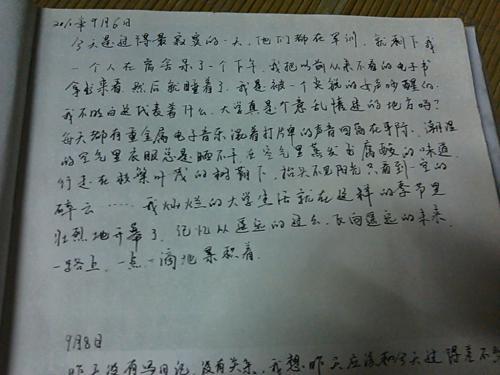 2010年9月6日
今天是过得最寂寞的一天，他们都在军训，就剩下我
一个人在宿舍呆了一个下午。我把以前从来不看的电子书
拿出来看，然后就睡着了。我是被一个尖锐的女声吵醒的。
我不明白这代表着什么，大学真是个意乱情迷的地方吗？
每天都有重金属电子音乐混着打片单的声音回荡在耳际。潮湿
的空气里衣服总是晒不干，在空气里蒸发出腐酸的味道。
行走在枝繁叶茂的树荫下，抬头不见阳光，只看到一空的
碎云……我灿烂的大学生活就在这样的季节里
壮烈地开幕了。记忆从遥远的过去，反向遥远的未来，
一路上，一点一滴地累积着。
9月8日
昨天没有写日记，没有关系，我想，昨天应该和今天过得差不多